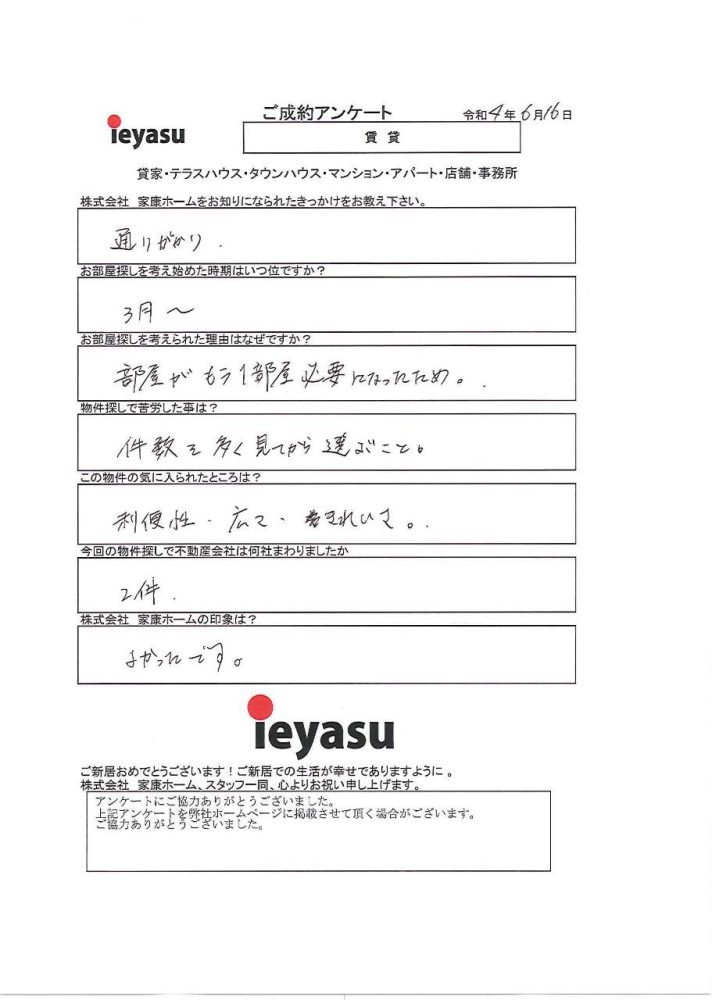 ieyasu
ご成約アンケート
令和4年6月16日
賃 貸
貸家・テラスハウス・タウンハウス・マンション・アパート・店舗・事務所
株式会社 家康ホームをお知りになられたきっかけをお教え下さい。
通りがかり.
お部屋探しを考え始めた時期はいつ位ですか？
3月〜
お部屋探しを考えられた理由はなぜですか？
部屋がもう1部屋必要になったため。.
物件探しで苦労した事は？
件数を多く見てから選ぶこと。
この物件の気に入られたところは？
利便性・広さ・きれいさ。.
今回の物件探しで不動産会社は何社まわりましたか
2件.
株式会社 家康ホームの印象は？
よかったです。
ieyasu
ご新居おめでとうございます！ご新居での生活が幸せでありますように。
株式会社 家康ホーム、スタッフ一同、心よりお祝い申し上げます。
アンケートにご協力ありがとうございました。
上記アンケートを弊社ホームページに掲載させて頂く場合がございます。
ご協力ありがとうございました。